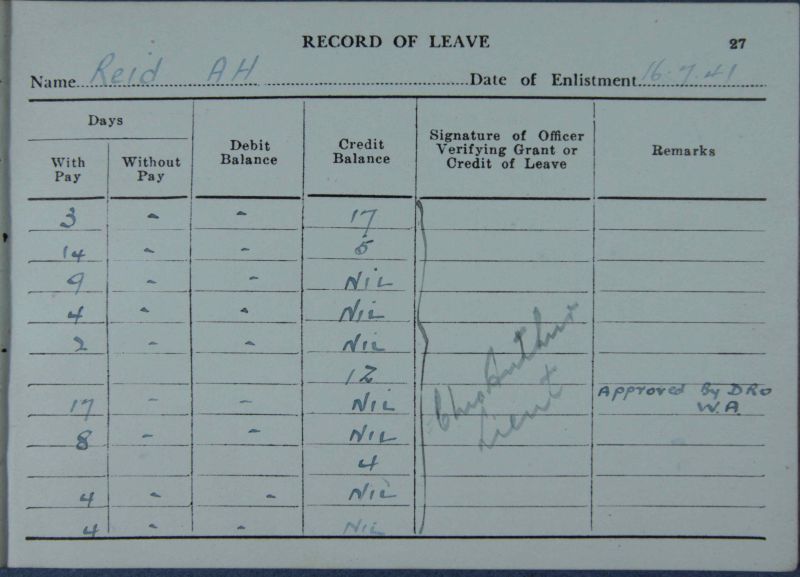 RECORD OF LEAVE 27
Name Reid AH Date of Enlistment 16.7.41
Days
With Pay Without Pay Debit Balance Credit Balance Signature of Officer Verifying Grant or Credit of Leave Remarks
3 - - 17
14 - - 5
9 - - NIL
4 - - NIL
2 - - NIL
12
17 - - NIL Approved By DRO
W.A.
8 - - NIL
4
4 - - NIL
4 - - NIL
Lieut